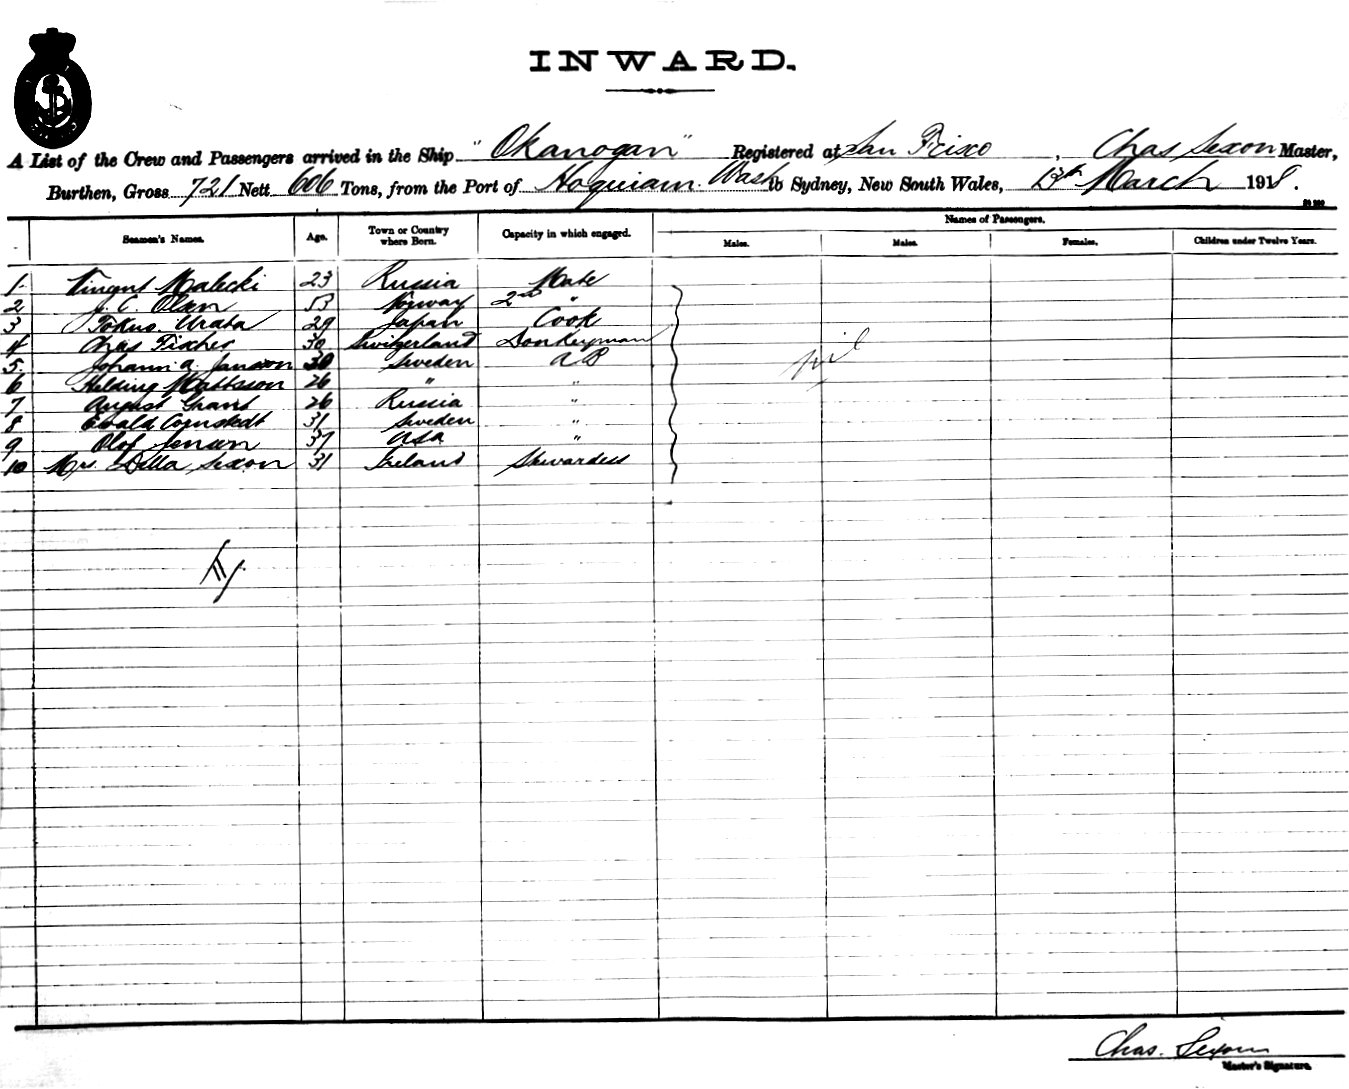 INWARD.
A List of the Crew and Passengers arrived in the Ship "Okanogan" Registered at San Frisco, Chas Sexon Master,
Burthen, Gross 721 Nett 606 Tons, from the Port of Hoquiam. Wash to Sydney, New South Wales, 13th March 1918.
Names of Passengers.
Seamen's Names. Age. Town or Country where Born. Capacity in which engaged. Males. Males. Females. Children under Twelve Years.
1 Vincent Malecki 23 Russia Mate
2 J. C. Olsen 53 Norway 2nd "
3 Tokuo Urata 29 Japan Cook
4 Chas Fischer 30 Switzerland Donkeyman nil
5. Johann A. Jansson 30 Sweden AB
6 Helding Mattsson 26 " "
7 August Grant 26 Russia "
8 Ewald Cornstedt 31 Sweden "
9 Olof Jensen 37 USA "
10 Mrs. Della Sexon 31 Ireland Stewardess
Chas. Sexon
Master's Signature.